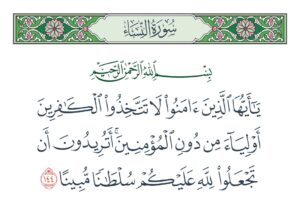 سُورَةُ النِّسَاءِ
بِسْمِ ٱللَّهِ ٱلرَّحْمَٰنِ ٱلرَّحِيمِ
يَٰٓأَيُّهَا ٱلَّذِينَ ءَامَنُوا۟ لَا تَتَّخِذُوا۟ ٱلْكَٰفِرِينَ
أَوْلِيَآءَ مِن دُونِ ٱلْمُؤْمِنِينَۚ أَتُرِيدُونَ أَن
تَجْعَلُوا۟ لِلَّهِ عَلَيْكُمْ سُلْطَٰنًا مُّبِينًا ١٤٤